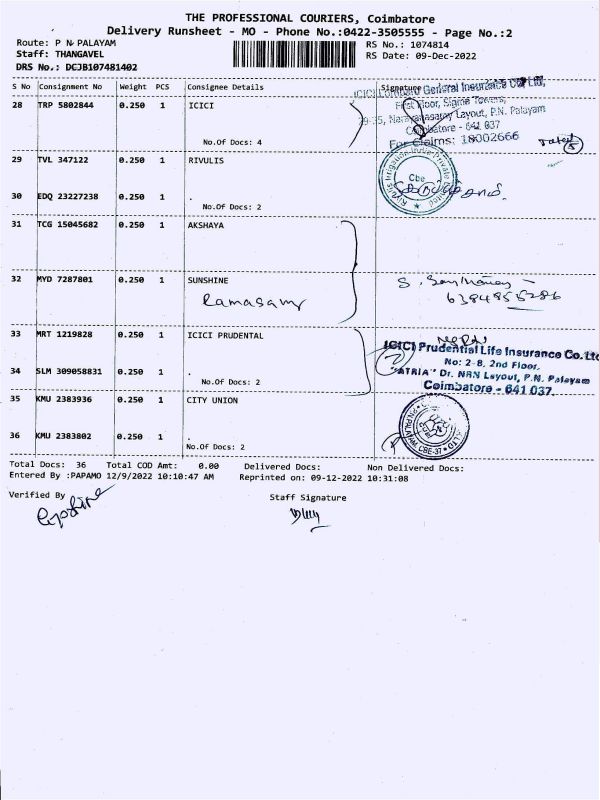 THE PROFESSIONAL COURIERS, Coimbatore
Delivery Runsheet - MO - Phone No.:0422-3505555 - Page No.:2
Route: P N PALAYAM
RS No.: 1074814
Staff: THANGAVEL
RS Date: 09-Dec-2022
DRS No.: DCJB107481402
S No Consignment No Weight PCS Consignee Details Signature
ICICI Lombard General Insurance Co. Ltd,
28 TRP 5802844 0.250 1 ICICI
First Floor, Sigma Towers,
Layout, P.N. Palayam
Coimbatore - 641 037
No.Of Docs: 4
For Claims: 18002666
29 TVL 347122 0.250 1 RIVULIS
Rivulis Irrigation India Private Limited
Cbe
30 EDQ 23227238 0.250 1 .
No.Of Docs: 2
31 TCG 15045682 0.250 1 AKSHAYA
32 MYD 7287801 0.250 1 SUNSHINE
Ramasamy
6384855286
33 MRT 1219828 0.250 1 ICICI PRUDENTAL
ICICI Prudential Life Insurance Co. Ltd
No: 2-B, 2nd Floor,
34 SLM 309058831 0.250 1 .
"ATRIA" Dr. NRN Layout, P.N. Palayam
No.Of Docs: 2
Coimbatore - 641 037.
35 KMU 2383936 0.250 1 CITY UNION
36 KMU 2383802 0.250 1 .
No.Of Docs: 2
Total Docs: 36 Total COD Amt: 0.00 Delivered Docs: Non Delivered Docs:
Entered By :PAPAMO 12/9/2022 10:10:47 AM Reprinted on: 09-12-2022 10:31:08
Verified By
Staff Signature